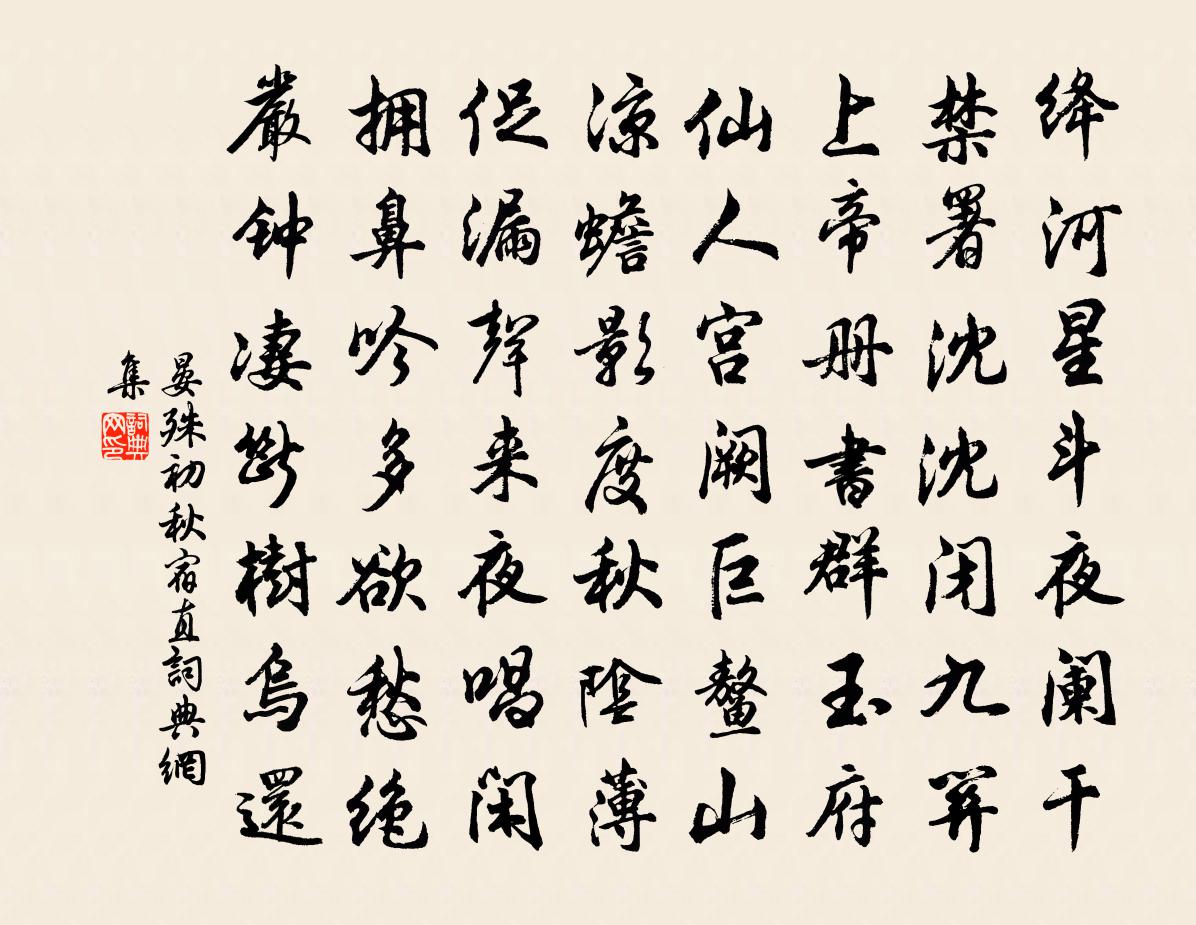 绛河星斗夜阑干
禁署沈沈闭九关
上帝册書群玉府
仙人宫阙巨鳌山
凉蟾影度秋陰薄
促漏聲来夜唱闲
拥鼻吟多欲愁绝
嚴钟凄断樹烏還
晏殊初秋宿直詞典網
集
詞典網印